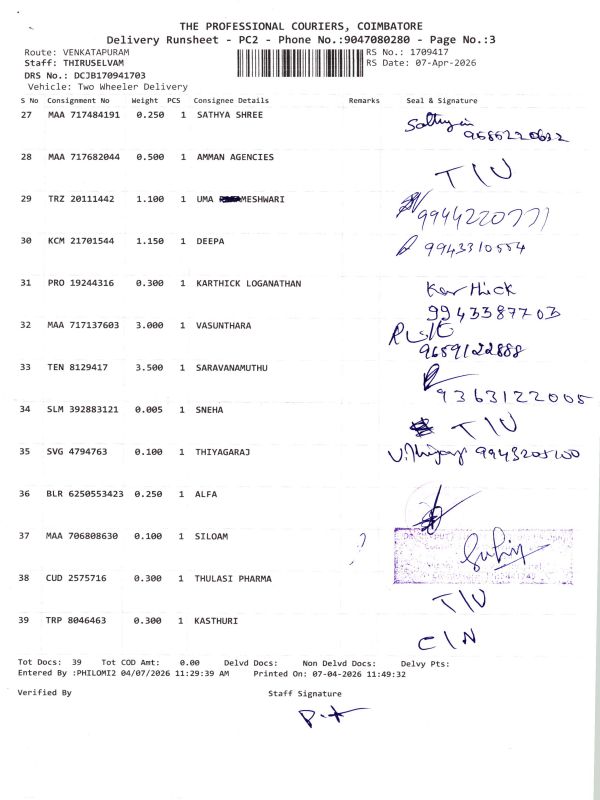 THE PROFESSIONAL COURIERS, COIMBATORE
Delivery Runsheet - PC2 - Phone No.:9047080280 - Page No.:3
Route: VENKATAPURAM
RS No.: 1709417
Staff: THIRUSELVAM
RS Date: 07-Apr-2026
DRS No.: DCJB170941703
Vehicle: Two Wheeler Delivery
S No Consignment No Weight PCS Consignee Details Remarks Seal & Signature
27 MAA 717484191 0.250 1 SATHYA SHREE
28 MAA 717682044 0.500 1 AMMAN AGENCIES T/U
29 TRZ 20111442 1.100 1 UMA MESHWARI
30 KCM 21701544 1.150 1 DEEPA 9943310554
31 PRO 19244316 0.300 1 KARTHICK LOGANATHAN Karthick
9943387703
32 MAA 717137603 3.000 1 VASUNTHARA
9659122888
33 TEN 8129417 3.500 1 SARAVANAMUTHU
9363122005
34 SLM 392883121 0.005 1 SNEHA T/U
35 SVG 4794763 0.100 1 THIYAGARAJ
36 BLR 6250553423 0.250 1 ALFA
37 MAA 706808630 0.100 1 SILOAM
38 CUD 2575716 0.300 1 THULASI PHARMA T/U
39 TRP 8046463 0.300 1 KASTHURI C/N
Tot Docs: 39 Tot COD Amt: 0.00 Delvd Docs: Non Delvd Docs: Delvy Pts:
Entered By :PHILOMI2 04/07/2026 11:29:39 AM Printed On: 07-04-2026 11:49:32
Verified By Staff Signature